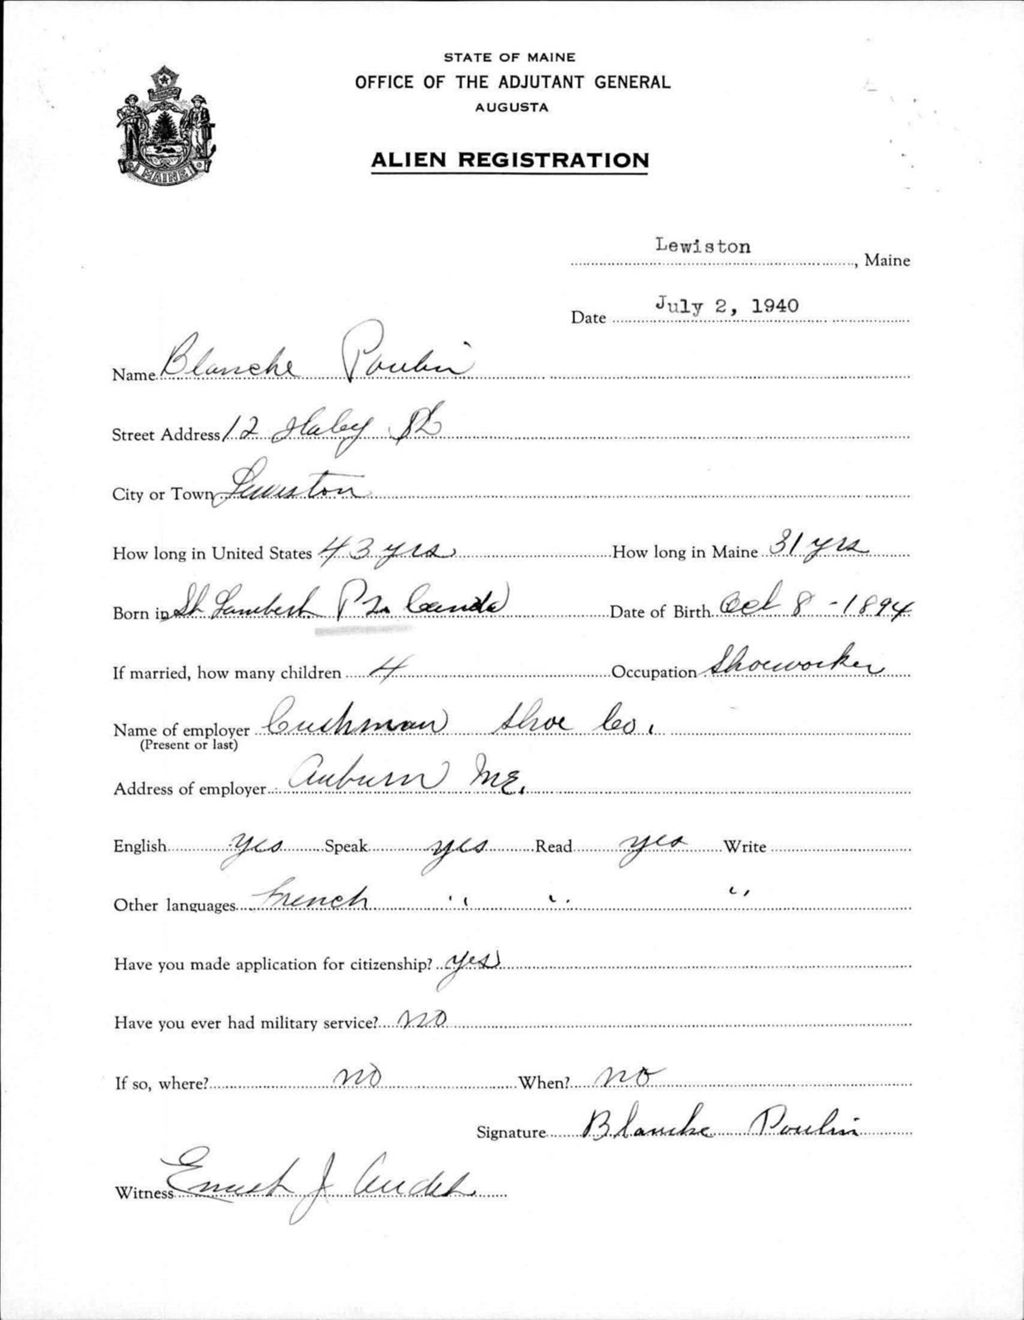 STATE OF MAINE
OFFICE OF THE ADJUTANT GENERAL
AUGUSTA
ALIEN REGISTRATION
MAINE
Lewiston, Maine
Date July 2, 1940
Name Blanche Poulin
Street Address 12 Haley St
City or Town Lewiston
How long in United States 43 yrs. How long in Maine 31 yrs
Born in St Lambert P Canda Date of Birth Oct 8 - 1894
If married, how many children 4 Occupation Shoeworker
Name of employer Cushman Shoe Co.
(Present or last)
Address of employer Auburn Me.
English yes Speak yes Read yes Write
Other languages French " " "
Have you made application for citizenship? yes
Have you ever had military service? no
If so, where? no When? no
Signature Blanche Poulin
Witness Ernest J Audet